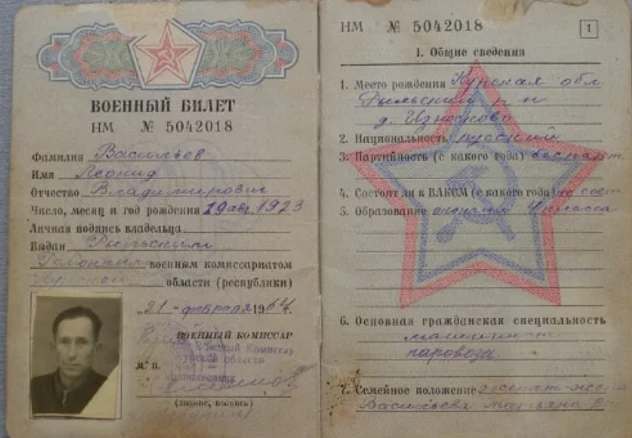 ВОЕННЫЙ БИЛЕТ
НМ № 5042018
Фамилия Васильев
Имя Леонид
Отчество Владимирович
Число, месяц и год рождения 19 авг 1923
Личная подпись владельца
Выдан Рыльским
Районным военным комиссариатом
Курской области (республики)
„21“ февраля 1964.
ВОЕННЫЙ КОМИССАР
М. п.
(звание, подпись)
НМ № 5042018
1
1. Общие сведения
1. Место рождения Курская обл
Рыльский р-н
д. Износково
2. Национальность русский
3. Партийность (с какого года) беспарт.
4. Состоит ли в ВЛКСМ (с какого года) не сост
5. Образование окончил 4 класса
6. Основная гражданская специальность
машинист
паровоза
7. Семейное положение женат-жена
Васильева Татьяна